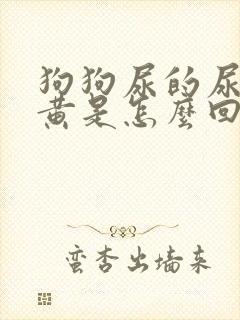 狗狗尿的尿
黄是怎麼回
蛮杏出墙来